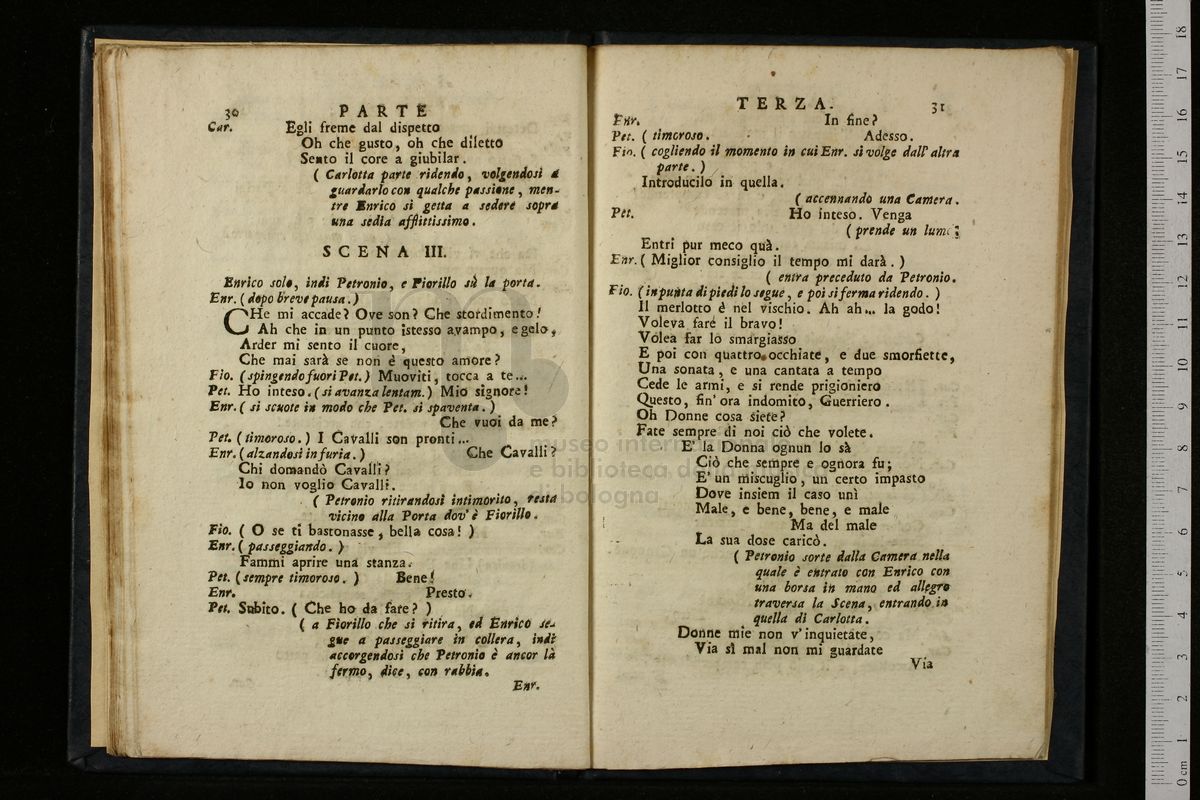 30 PARTE
Car. Egli freme dal dispetto
Oh che gusto, oh che diletto
Sento il core a giubilar.
( Carlotta parte ridendo, volgendosi a
guardarlo con qualche passione, men-
tre Enrico si getta a sedere sopra
una sedia afflittissimo.
SCENA III.
Enrico solo, indi Petronio, e Fiorillo sù la porta.
Enr. (dopo breve pausa.)
CHe mi accade? Ove son? Che stordimento!
Ah che in un punto istesso avampo, e gelo,
Arder mi sento il cuore,
Che mai sarà se non è questo amore?
Fio. (spingendo fuori Pet.) Muoviti, tocca a te...
Pet. Ho inteso. (si avanza lentam.) Mio signore!
Enr. ( si scuote in modo che Pet. si spaventa.)
Che vuoi da me?
Pet. (timoroso.) I Cavalli son pronti...
Enr. (alzandosi in furia.) Che Cavalli?
Chi domandò Cavalli?
Io non voglio Cavalli.
( Petronio ritirandosi intimorito, resta
vicino alla Porta dov' è Fiorillo.
Fio. ( O se ti bastonasse, bella cosa! )
Enr. ( passeggiando. )
Fammi aprire una stanza.
Pet. (sempre timoroso. ) Bene!
Enr. Presto.
Pet. Subito. ( Che ho da fare? )
( a Fiorillo che si ritira, ed Enrico se-
gue a passeggiare in collera, indi
accorgendosi che Petronio è ancor là
fermo, dice, con rabbia.
Enr.
TERZA. 31
Enr. In fine?
Pet. ( timoroso. Adesso.
Fio. ( cogliendo il momento in cui Enr. si volge dall' altra
parte. )
Introducilo in quella.
( accennando una Camera.
Pet. Ho inteso. Venga
( prende un lume;
Entri pur meco quà.
Enr. ( Miglior consiglio il tempo mi darà. )
( entra preceduto da Petronio.
Fio. (in punta di piedi lo segue, e poi si ferma ridendo. )
Il merlotto è nel vischio. Ah ah... la godo!
Voleva fare il bravo!
Volea far lo smargiasso
E poi con quattro occhiate, e due smorfiette,
Una sonata, e una cantata a tempo
Cede le armi, e si rende prigioniero
Questo, fin' ora indomito, Guerriero.
Oh Donne cosa siete?
Fate sempre di noi ciò che volete.
E' la Donna ognun lo sà
Ciò che sempre e ognora fu;
E' un miscuglio, un certo impasto
Dove insiem il caso unì
Male, e bene, bene, e male
Ma del male
La sua dose caricò.
( Petronio sorte dalla Camera nella
quale è entrato con Enrico con
una borsa in mano ed allegro
traversa la Scena, entrando in
quella di Carlotta.
Donne mie non v' inquietate,
Via sì mal non mi guardate
Via
museo internazionale
e biblioteca della musica
di bologna
0 cm 1 2 3 4 5 6 7 8 9 10 11 12 13 14 15 16 17 18